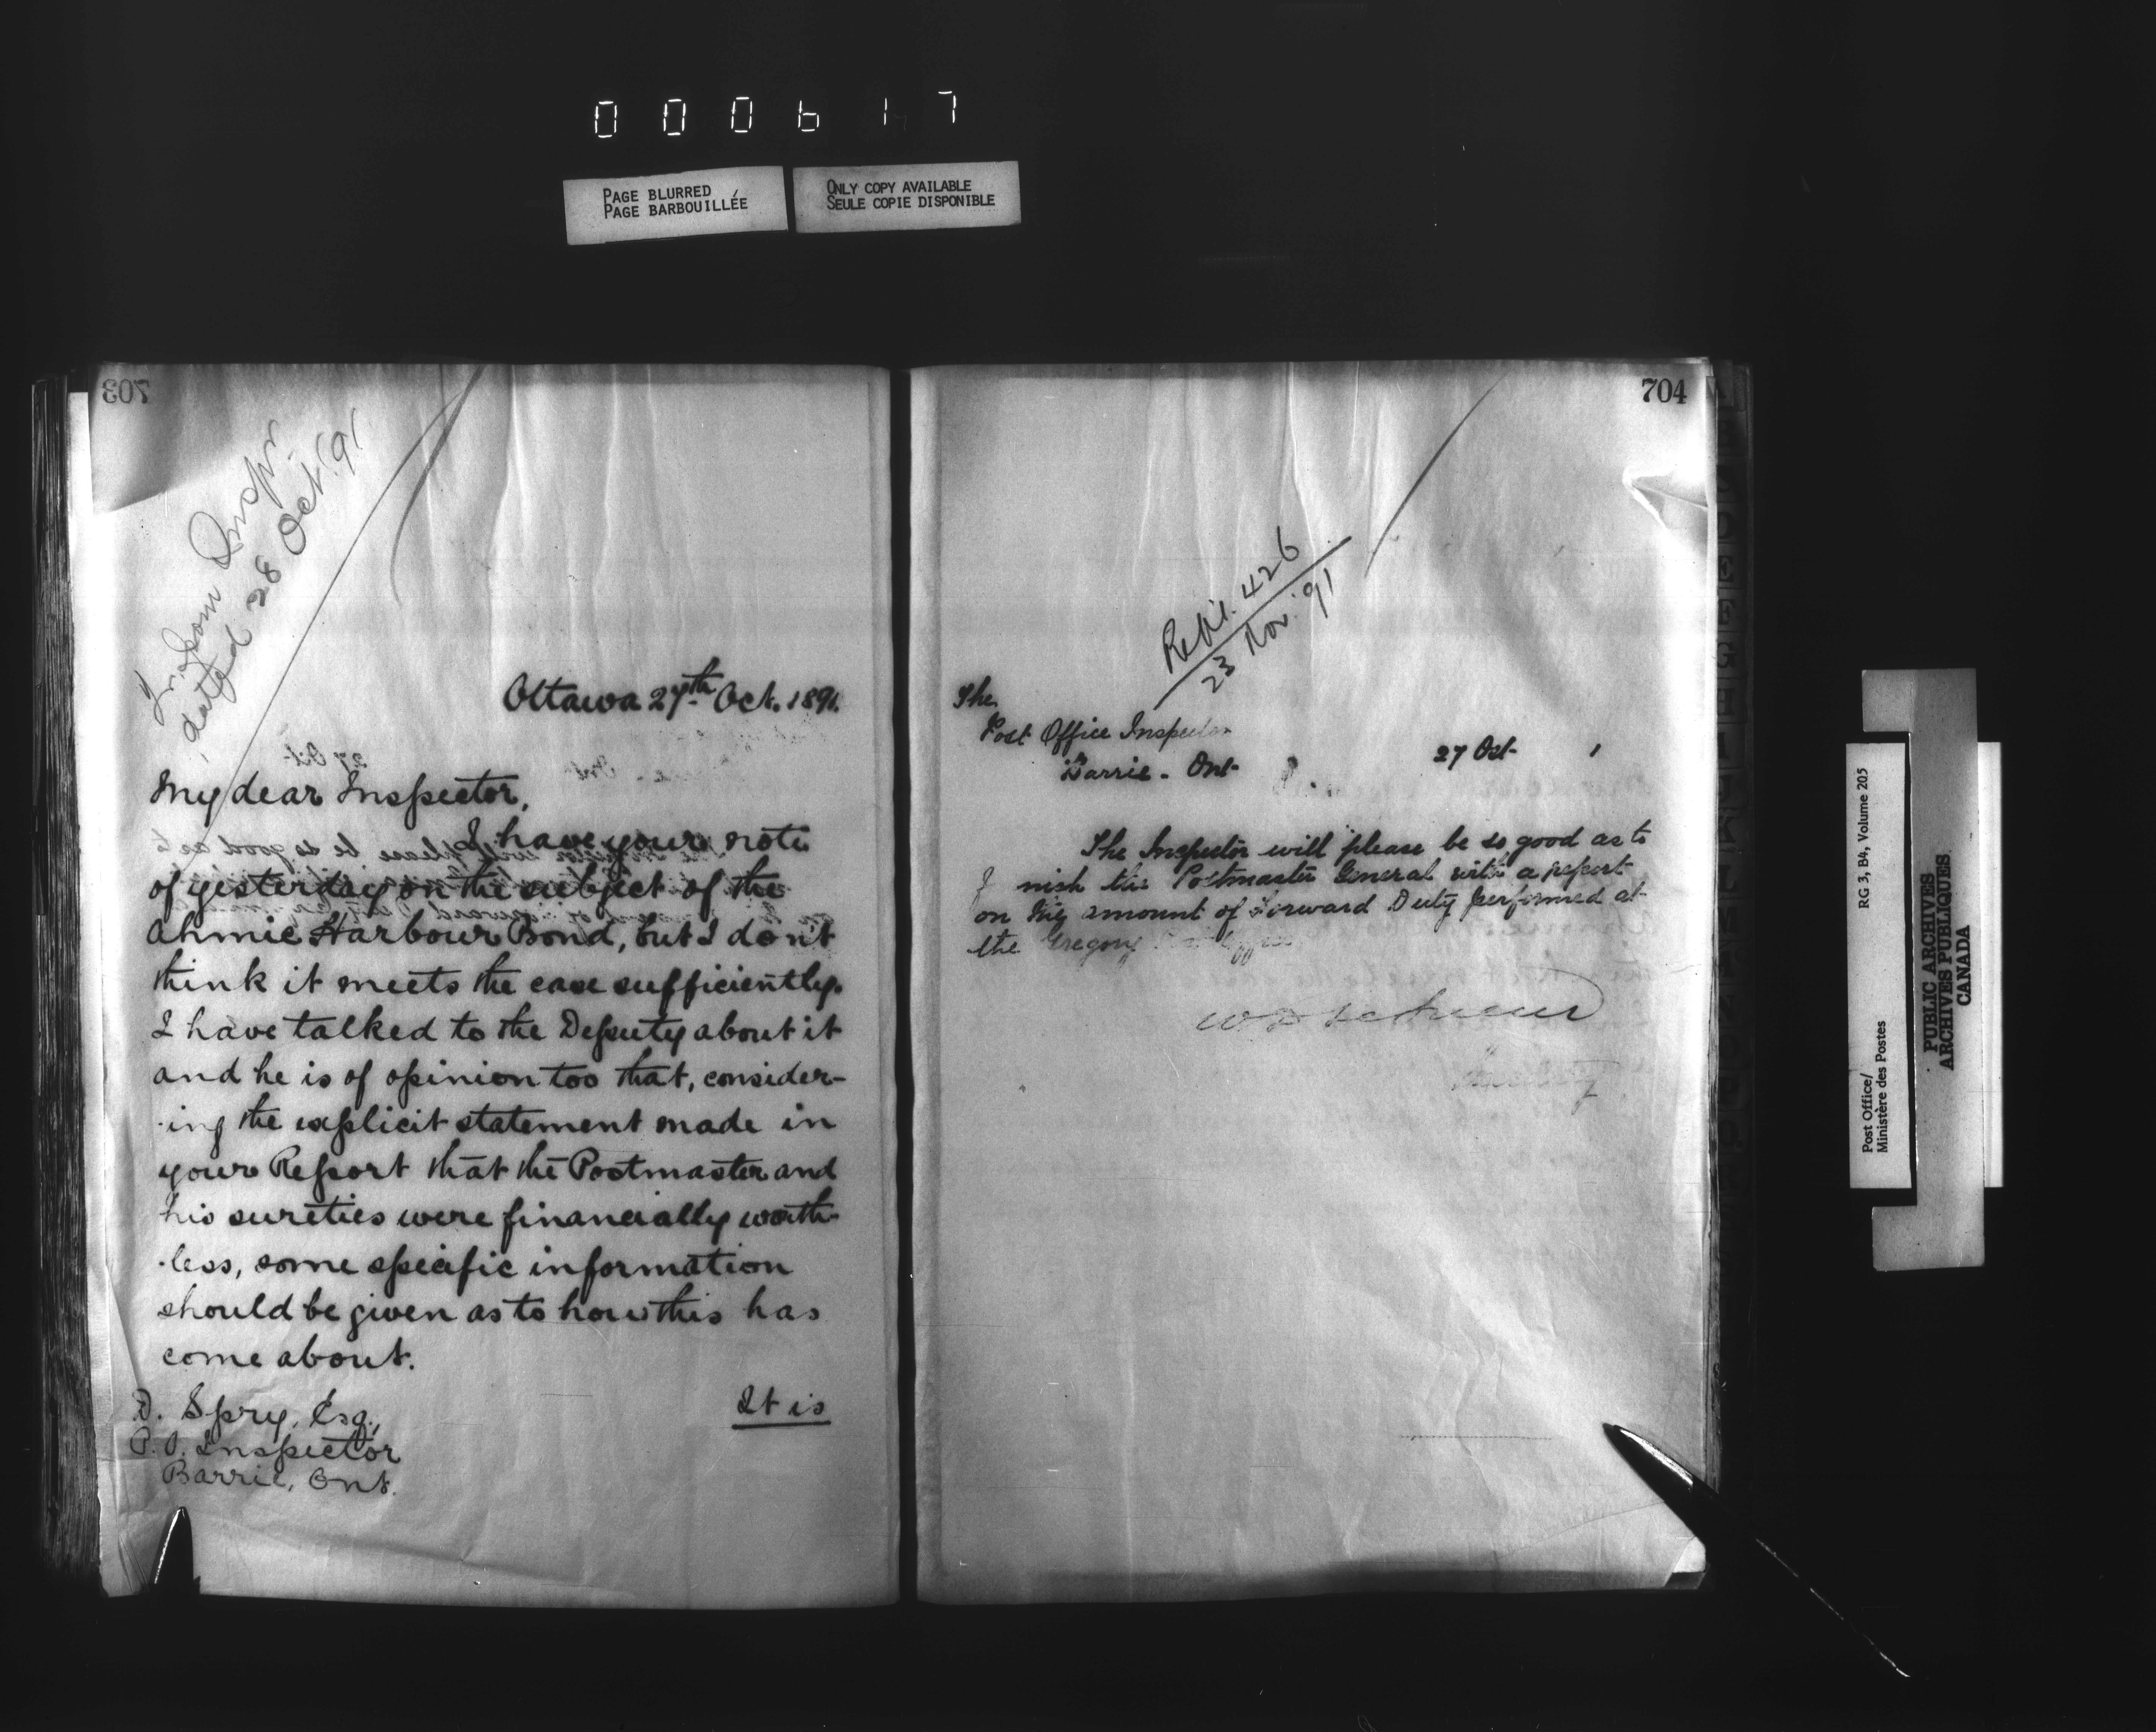 000617
PAGE BLURRED
PAGE BARBOUILLÉE
ONLY COPY AVAILABLE
SEULE COPIE DISPONIBLE
703
from Inspr.
dated 28 Oct. '91
Ottawa 27th Oct. 1891.
My dear Inspector,
I have your note
of yesterday on the subject of the
Ahmic Harbour Bond, but I don't
think it meets the case sufficiently.
I have talked to the Deputy about it
and he is of opinion too that, consider-
ing the explicit statement made in
your Report that the Postmaster and
his sureties were financially worth-
less, some specific information
should be given as to how this has
come about.
It is
D. Spry, Esq.,
P.O. Inspector
Barrie, Ont.
704
426
23 Nov. '91
The
Post Office Inspector
Barrie - Ont-
27 Oct- 1
The Inspector will please be so good as to
nish the Postmaster General with a report
on the amount of Forward Duty performed at
the Gregory
Post Office/
Ministère des Postes
RG 3, B4, Volume 205
PUBLIC ARCHIVES
ARCHIVES PUBLIQUES
CANADA